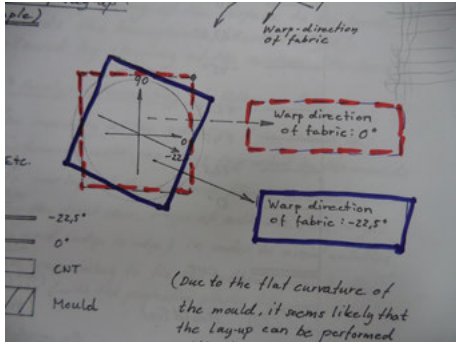 Warp-direction
of fabric
90
0
-22
Warp direction
of fabric: 0°
Warp direction
of fabric: -22,5°
Etc.
-22,5°
0°
CNT
Mould
(Due to the flat curvature of
the mould, it seems likely that
the lay-up can be performed